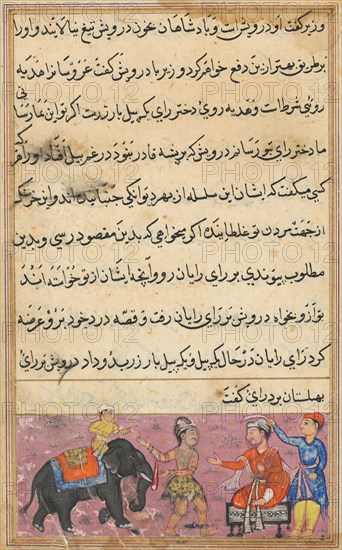 وزیر گفت او درویش است و پادشاهان بخون درویش تیغ نیالایند و او را
بر طریق بهتر ازین دفع خواهم کرد وزیر با درویش گفت عروسانرا هدیه
رونمی شرطست و هدیه روی دختر رای یک پیل بار زرست اگر توانی
ما دختر رای بتو رسانم درویش که پشه قادر نبود در غم پیل افتاد و از هر
کسی میگفت که ایشان این سلسله از بهر دیوانگی جنبانیده اند و این خرک
از جهت مردن تو غلطانیده اگر میخواهی که بدین مقصود رسی و بدین
مطلوب پیوندی بر رای رایان رو و آنچه ایشان از تو خواسته اند
تو ازو بخواه درویش بر رای رایان رفت و قصه درد خود برو عرضه
کرد رای رایان در حال یک پیل و یک پیل بار زر بدو داد درویش بر رای
بهلستان برد رای گفت